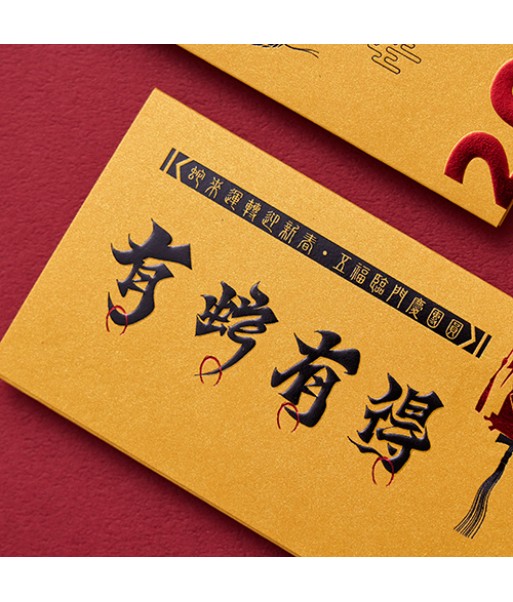 蛇來運轉迎新春·五福臨門慶團圓
有蛇有得
20